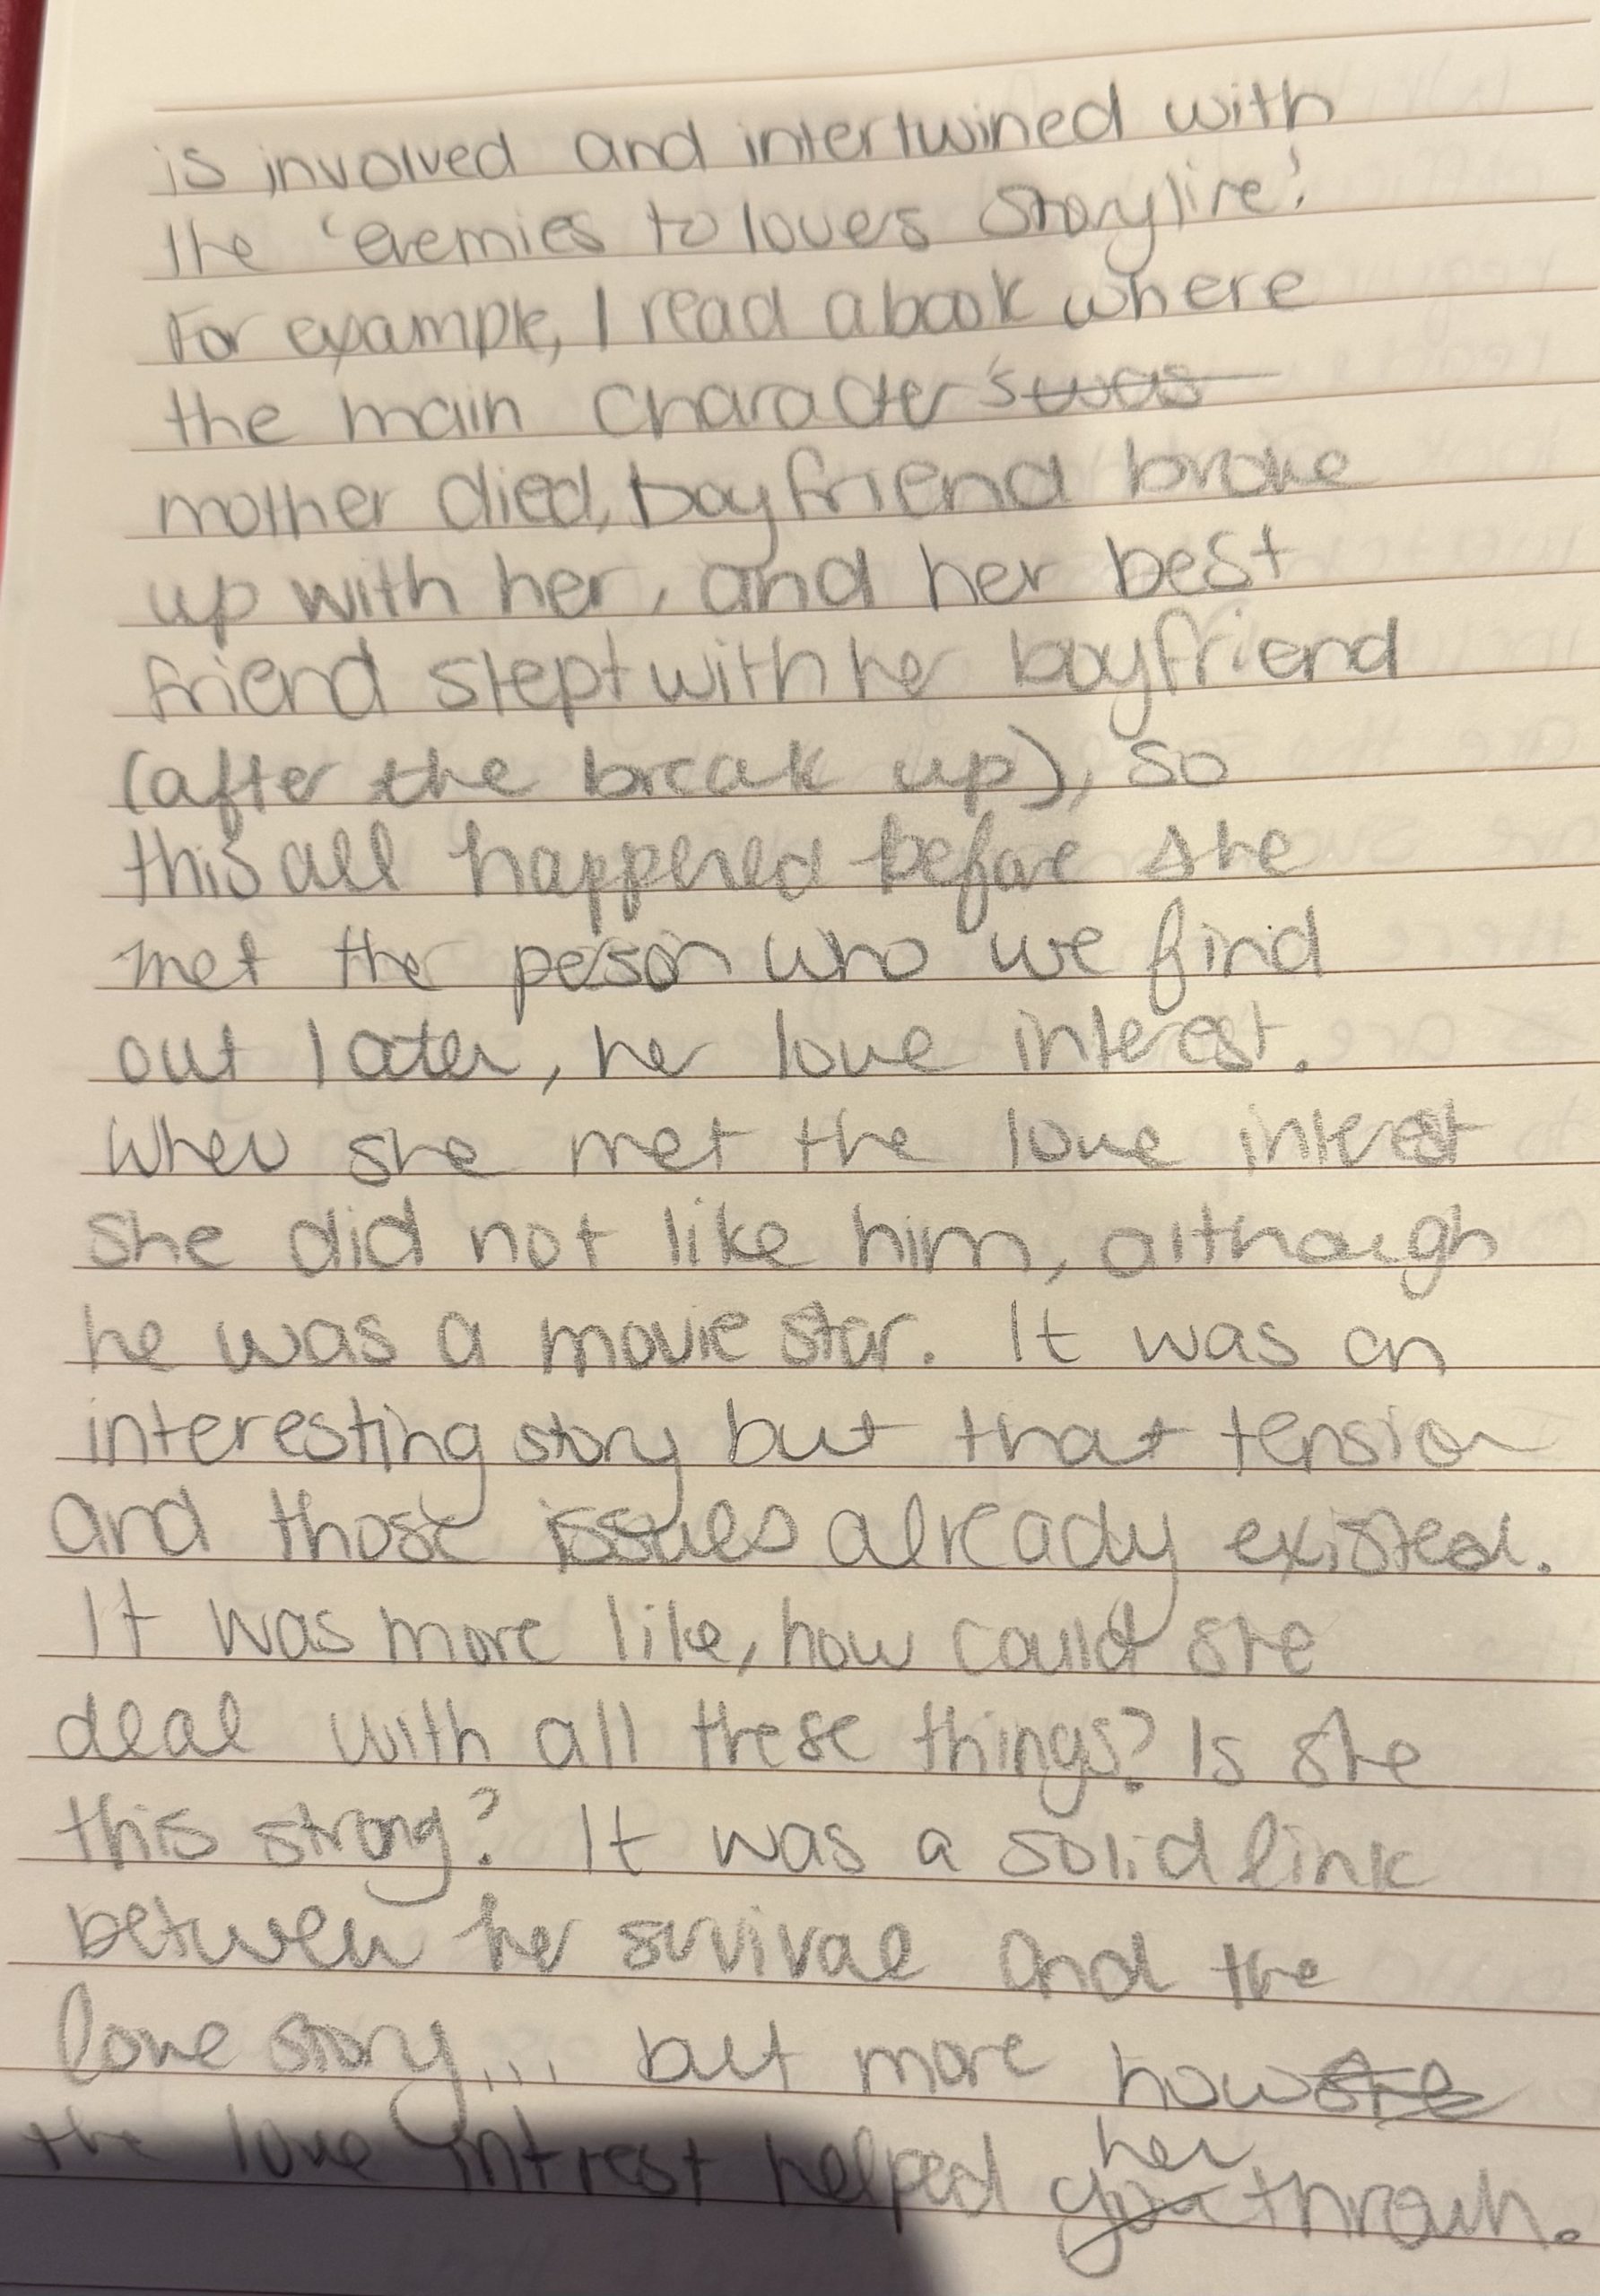 is involved and intertwined with
the 'enemies to lovers storyline'.
For example, I read a book where
the main character's was
mother died, boyfriend broke
up with her, and her best
friend slept with her boyfriend
(after the break up), so
this all happened before she
met the person who we find
out later, her love interest.
When she met the love interest
she did not like him, although
he was a movie star. It was an
interesting story but that tension
and those issues already existed.
It was more like, how could she
deal with all these things? Is she
this strong? It was a solid link
between her survival and the
love story... but more how she
the love intrest helped you her through.